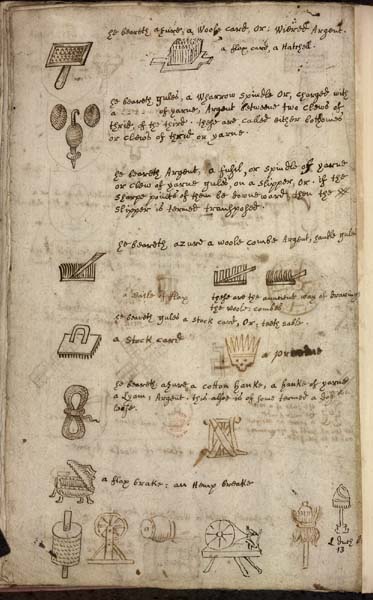 he beareth azure, a Wool card, Or: Wiered Argent.
a flax card, a Hatchell
he beareth, gules, a Wharrow spindle Or, charged with
a of yarne, Argent betweene two clews of
thrid, of the third. these are called either bottomes
or clews of thrid or yarne.
he beareth Argent, a fusil, or spindle of yarne
or clew of yarne gules, on a slipper, Or. if the
sharpe points of them be downeward, then the
slipper is termed transposed.
he beareth, azure a woole combe Argent, handle gules
a of flax
these are the auncient way of drawing
the woole: combes
he beareth gules a stock card, Or: teeth sable.
a stock card
he beareth azure a cotton hanke, a hanke of yarne
a Lyam, Argent. this also is of some termed a
a flax brake: an Hemp breake
13